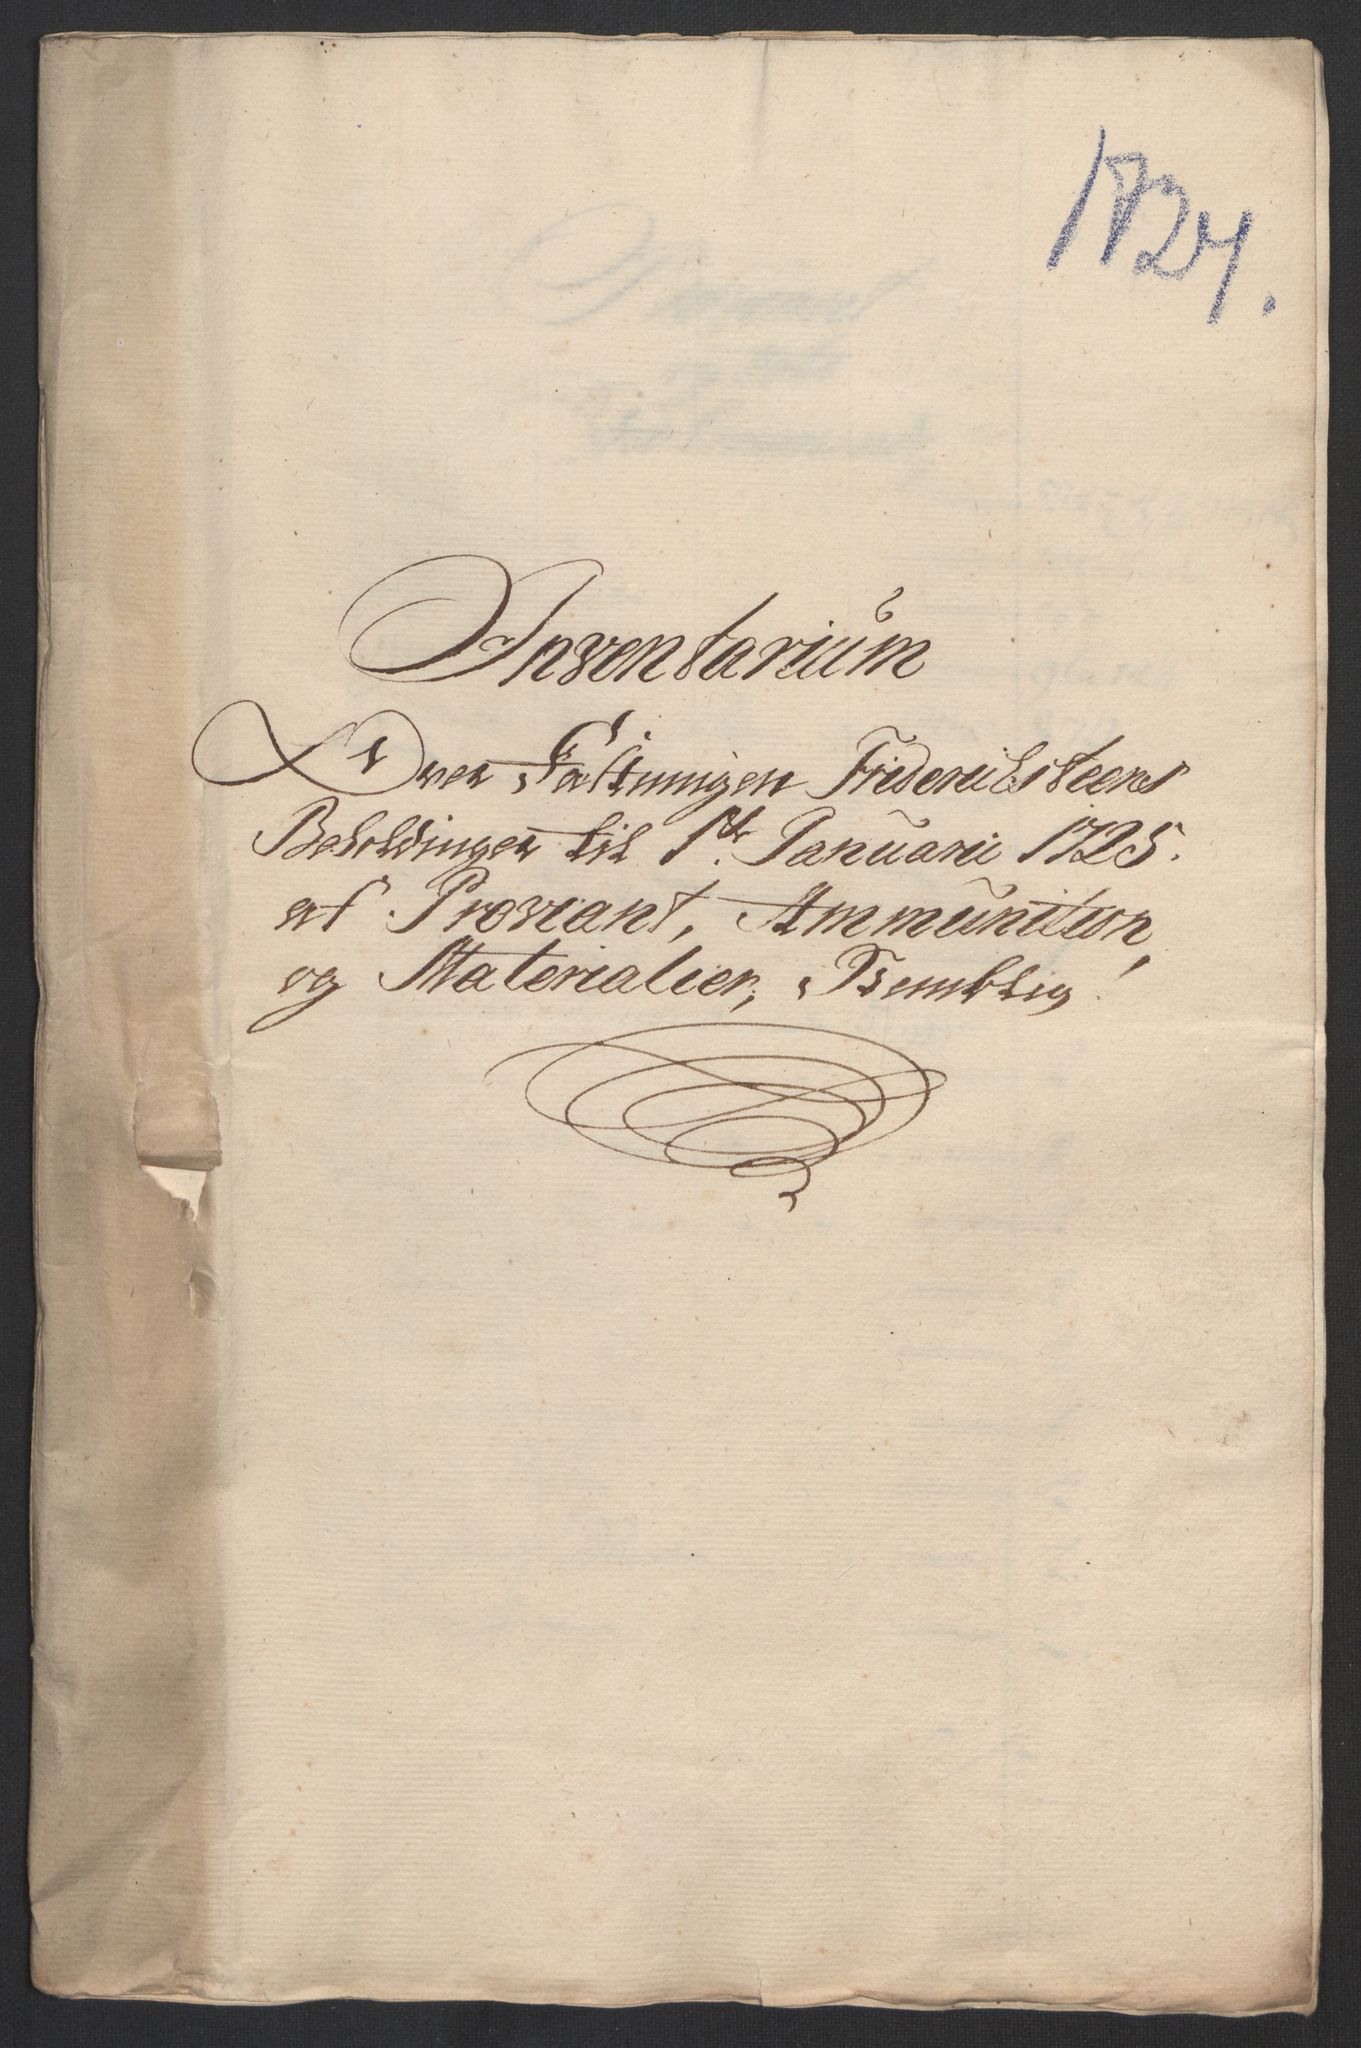 1724.
Inventarium
Over Fæstningen Friderichsteens
Beholdinger til 1te Januarii 1725.
af Proviant, Ammunition,
og Materialier,